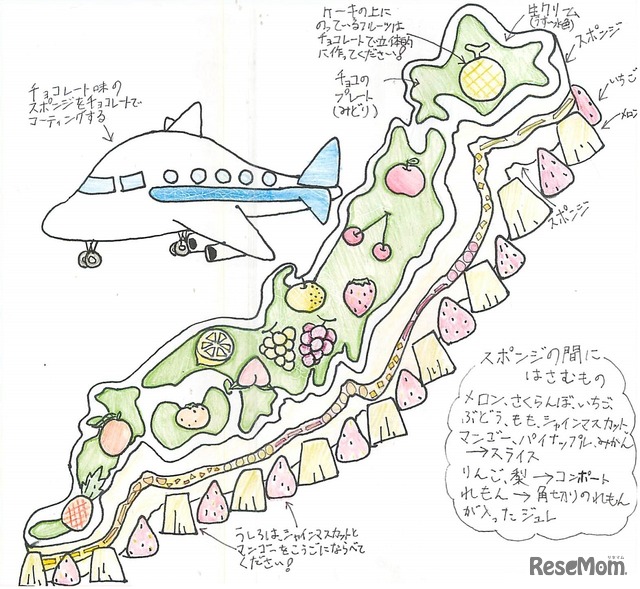 ケーキの上に
のっているフルーツは
チョコレートで立体的
に作ってください!
生クリーム
(うすい水色)
スポンジ
チョコの
プレート
(みどり)
いちご
メロン
スポンジ
チョコレート味の
スポンジをチョコレートで
コーティングする
スポンジの間に
はさむもの
メロン、さくらんぼ、いちご、
ぶどう、もも、シャインマスカット、
マンゴー、パイナップル、みかん
→スライス
りんご、梨→コンポート
れもん→角切りのれもん
が入ったジュレ
うしろは、シャインマスカットと
マンゴーをこうごにならべて
ください!
リセマム
ReseMom.